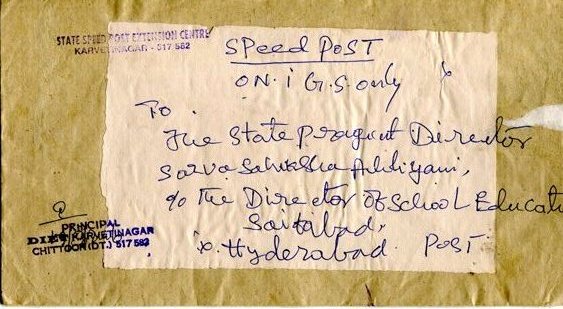 STATE SPEED POST EXTENSION CENTRE
KARVETINAGAR - 517 582
SPeed PoST
ON. i G.S. only
To
The State Project Director
Sarva Sahiksha Abhiyani,
c/o The Director of School Educati
Saifabad,
Hyderabad. POST
PRINCIPAL
DIET KARVETINAGAR
CHITTOOR (DT.) 517 582